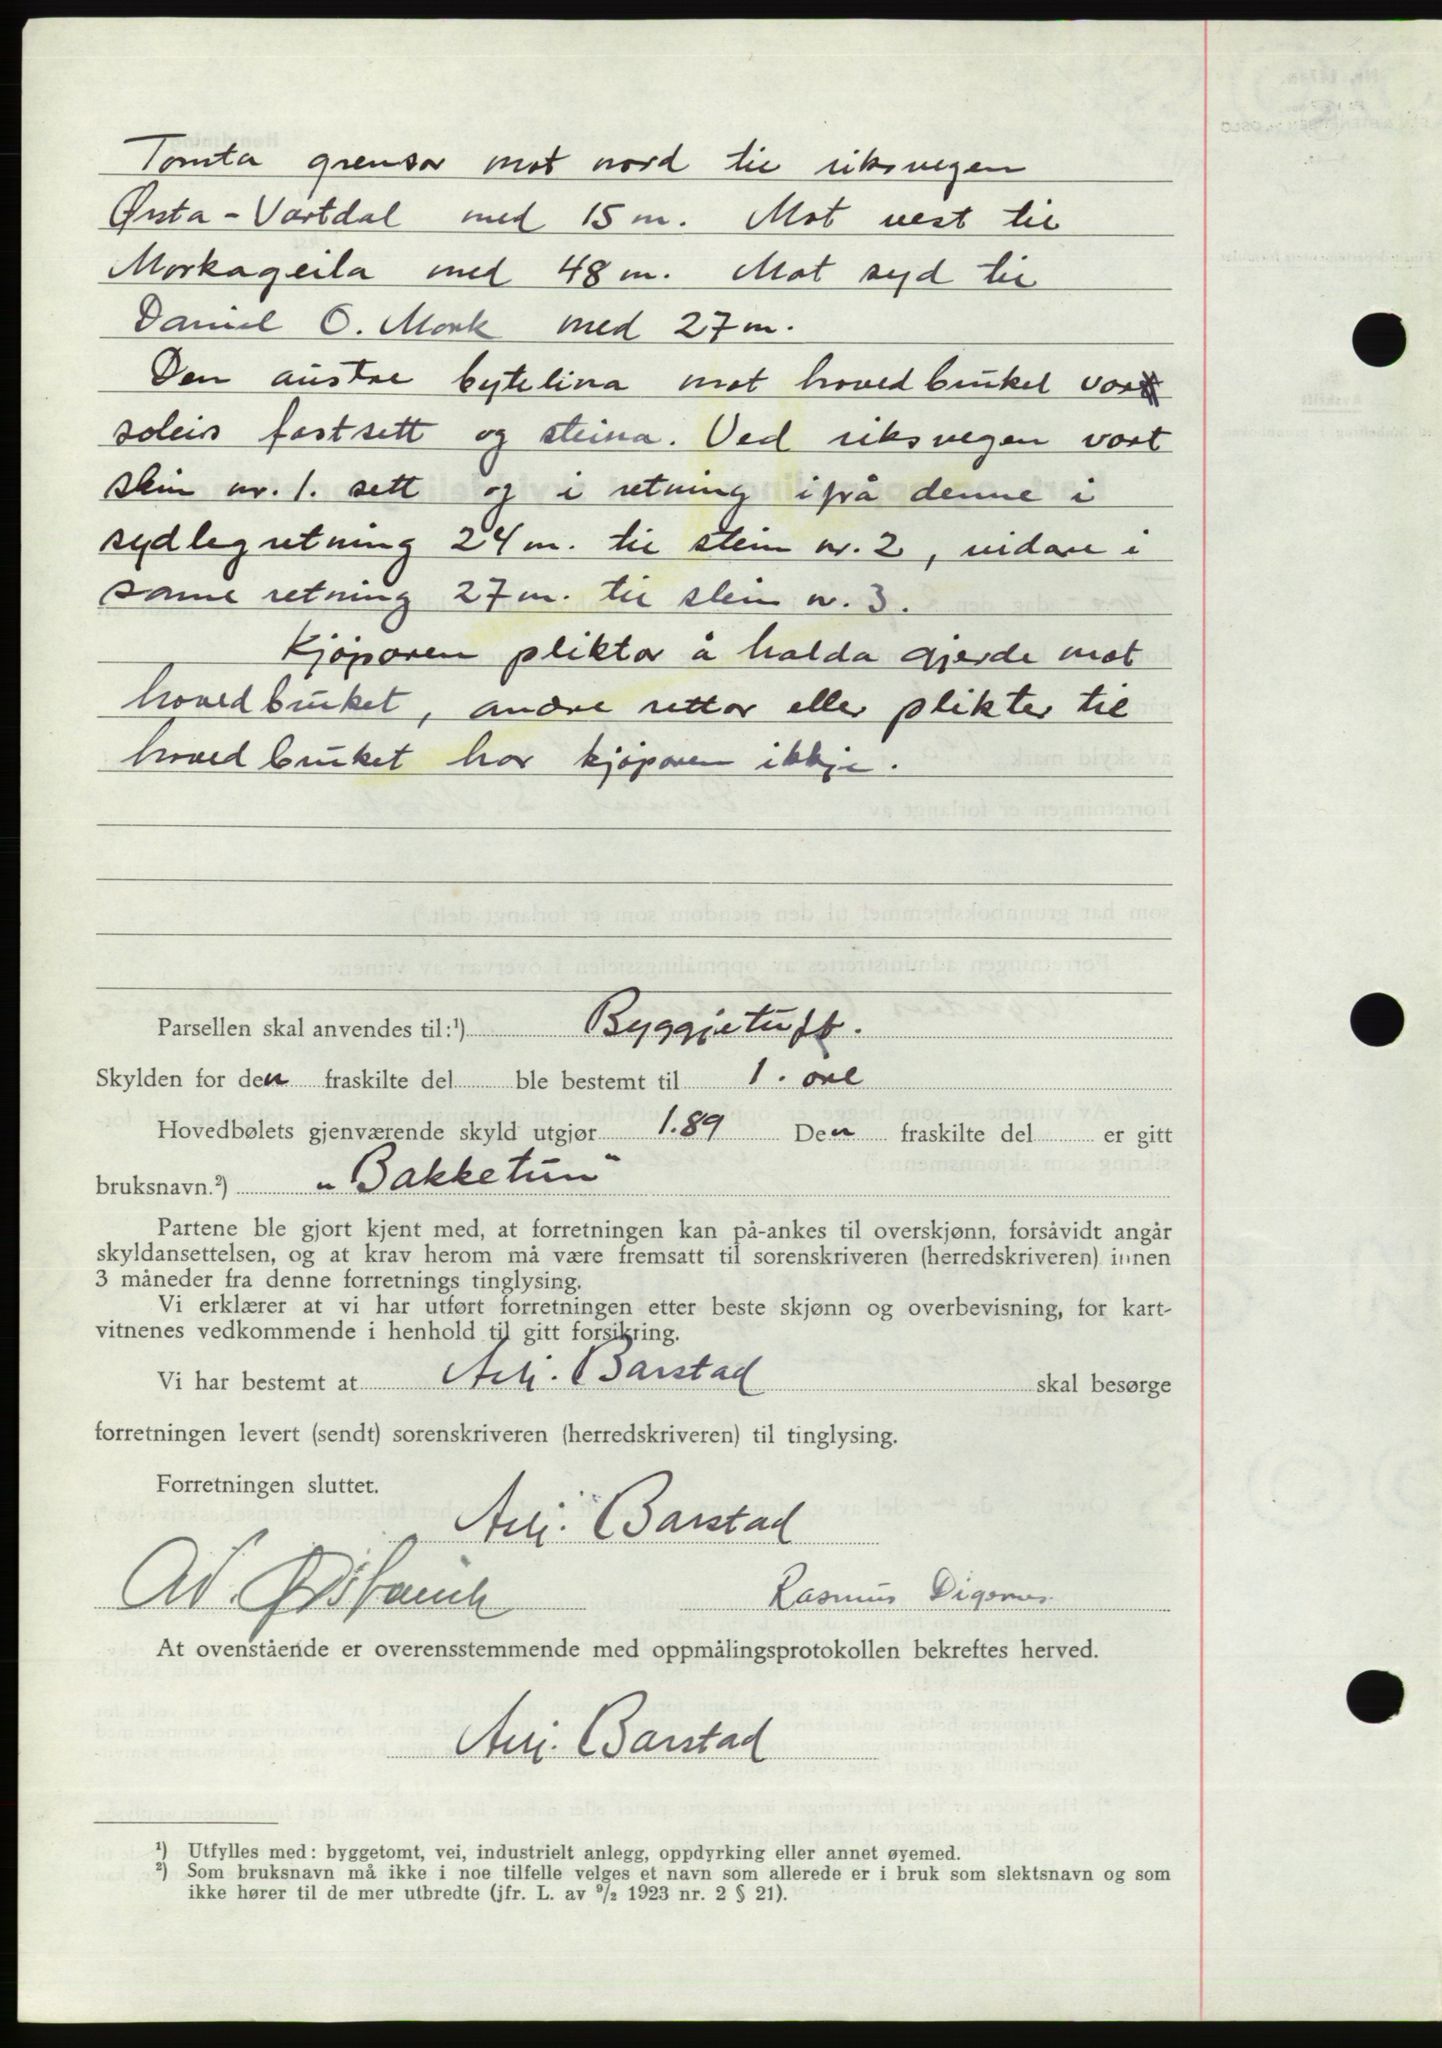 Tomta grensar mot nord til riksvegen
Ørsta - Vartdal med 15 m. Mot vest til
Morkageila med 48 m. Mot syd til
Daniel O. Mork med 27 m.
Den austre bytelina mot hovedbruket vart
soleis fastsett og steina. Ved riksvegen vart
stein nr. 1. sett og i retning ifrå denne i
sydlegretning 24 m. til stein nr. 2, vidare i
same retning 27 m. til stein nr. 3.
Kjøparen pliktar å halda gjerde mot
hovedbruket, andre rettar eller plikter til
hovedbruket har kjøparen ikkje.
Parsellen skal anvendes til:¹) Byggjetuft.
Skylden for den fraskilte del ble bestemt til 1. øre
Hovedbølets gjenværende skyld utgjør 1.89 Den fraskilte del er gitt
bruksnavn.²) „Bakketun"
Partene ble gjort kjent med, at forretningen kan på-ankes til overskjønn, forsåvidt angår
skyldansettelsen, og at krav herom må være fremsatt til sorenskriveren (herredskriveren) innen
3 måneder fra denne forretnings tinglysing.
Vi erklærer at vi har utført forretningen etter beste skjønn og overbevisning, for kart-
vitnenes vedkommende i henhold til gitt forsikring.
Vi har bestemt at Barstad skal besørge
forretningen levert (sendt) sorenskriveren (herredskriveren) til tinglysing.
Forretningen sluttet.
Barstad
Rasmus Digernes
At ovenstående er overensstemmende med oppmålingsprotokollen bekreftes herved.
Barstad
¹) Utfylles med: byggetomt, vei, industrielt anlegg, oppdyrking eller annet øyemed.
²) Som bruksnavn må ikke i noe tilfelle velges et navn som allerede er i bruk som slektsnavn og som
ikke hører til de mer utbredte (jfr. L. av 9/2 1923 nr. 2 § 21).